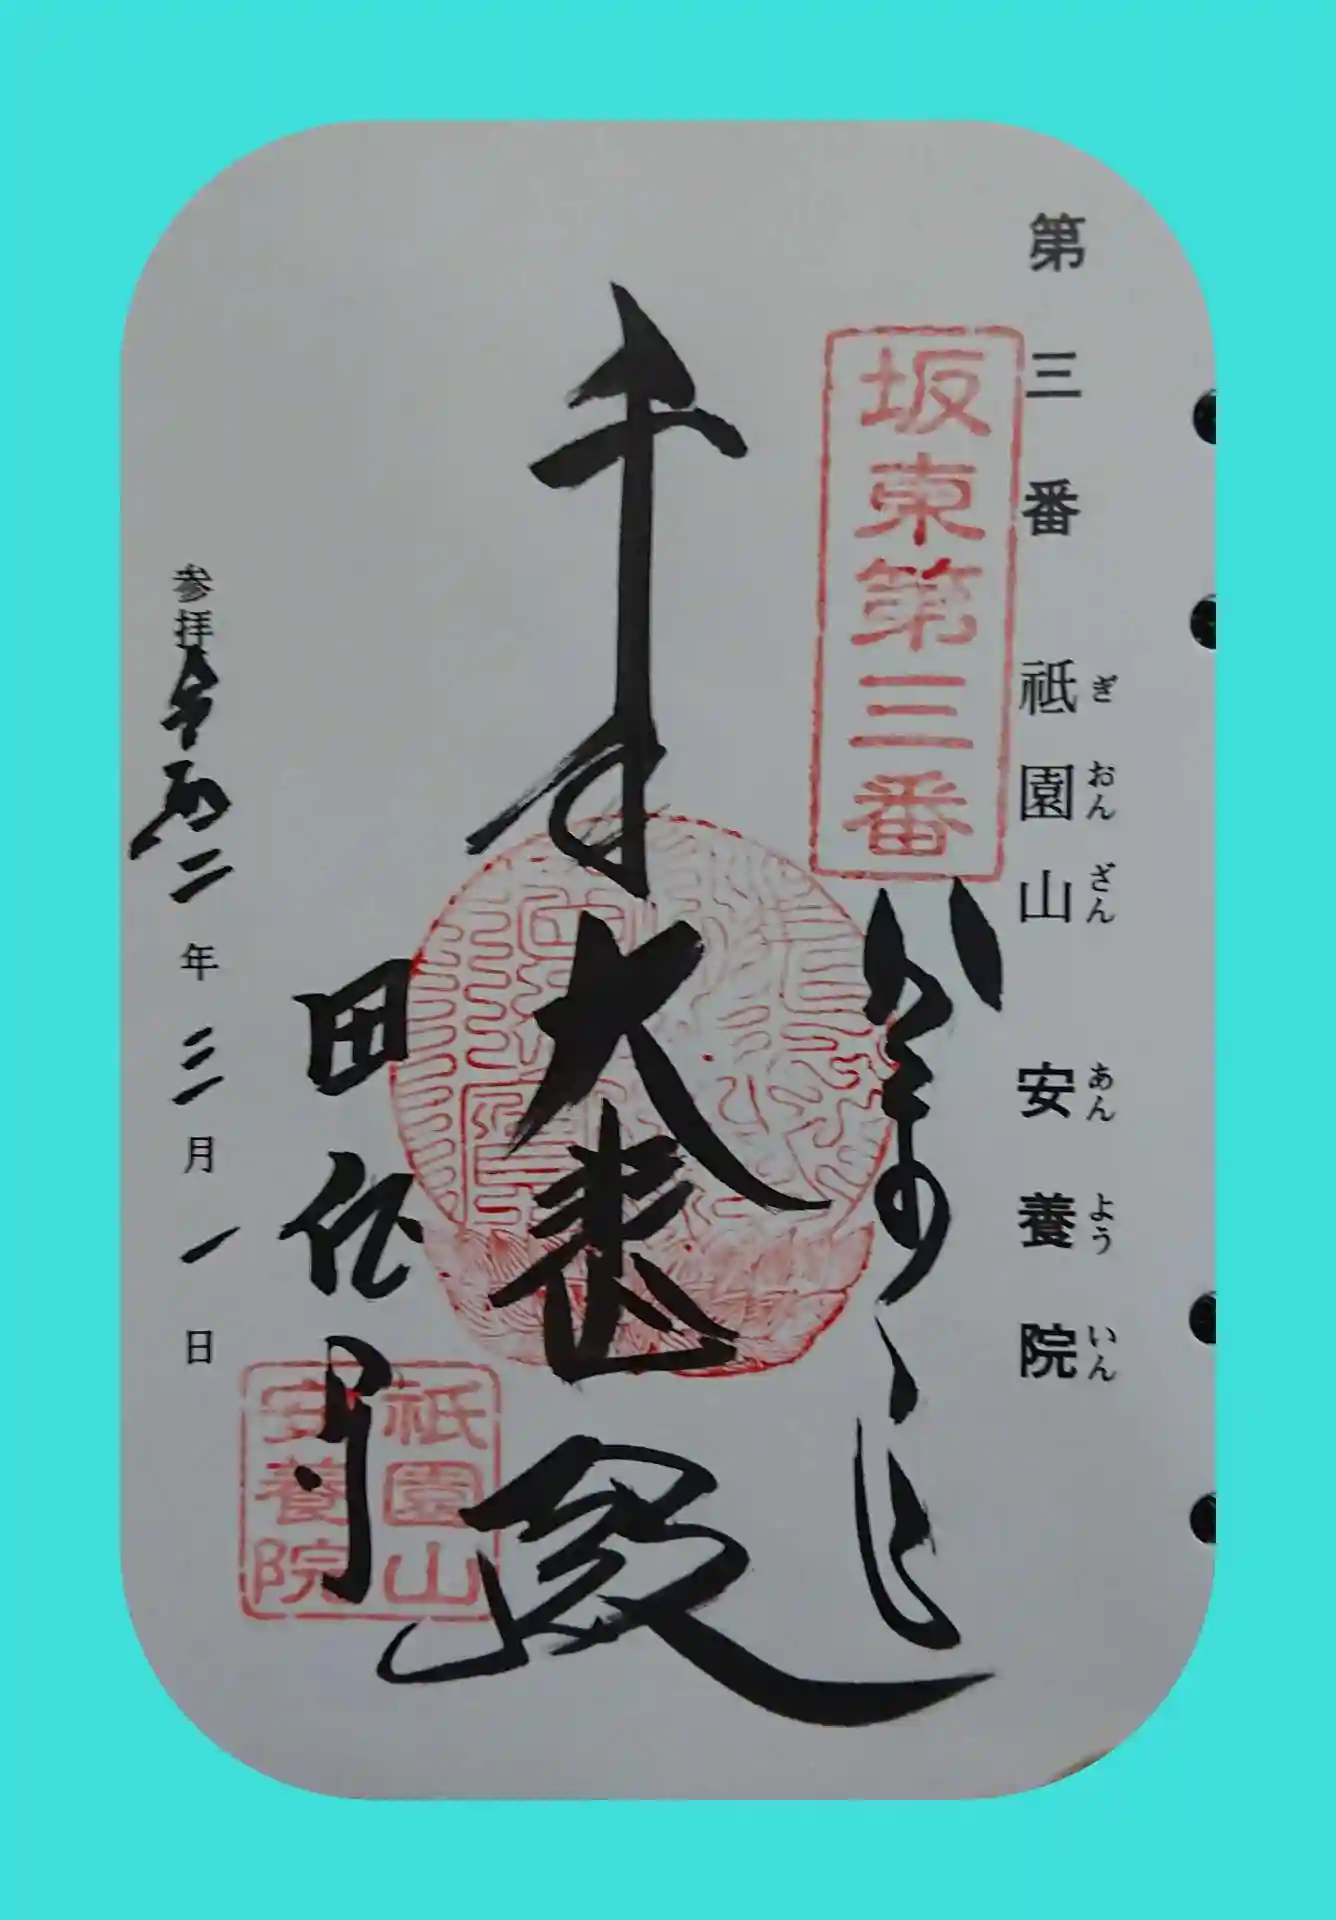 第三番 祇園山 安養院
ぎおんざん あんよういん
坂東第三番
かまくら
千手大悲殿
田代寺
祇園山
安養院
参拝令和二年三月一日